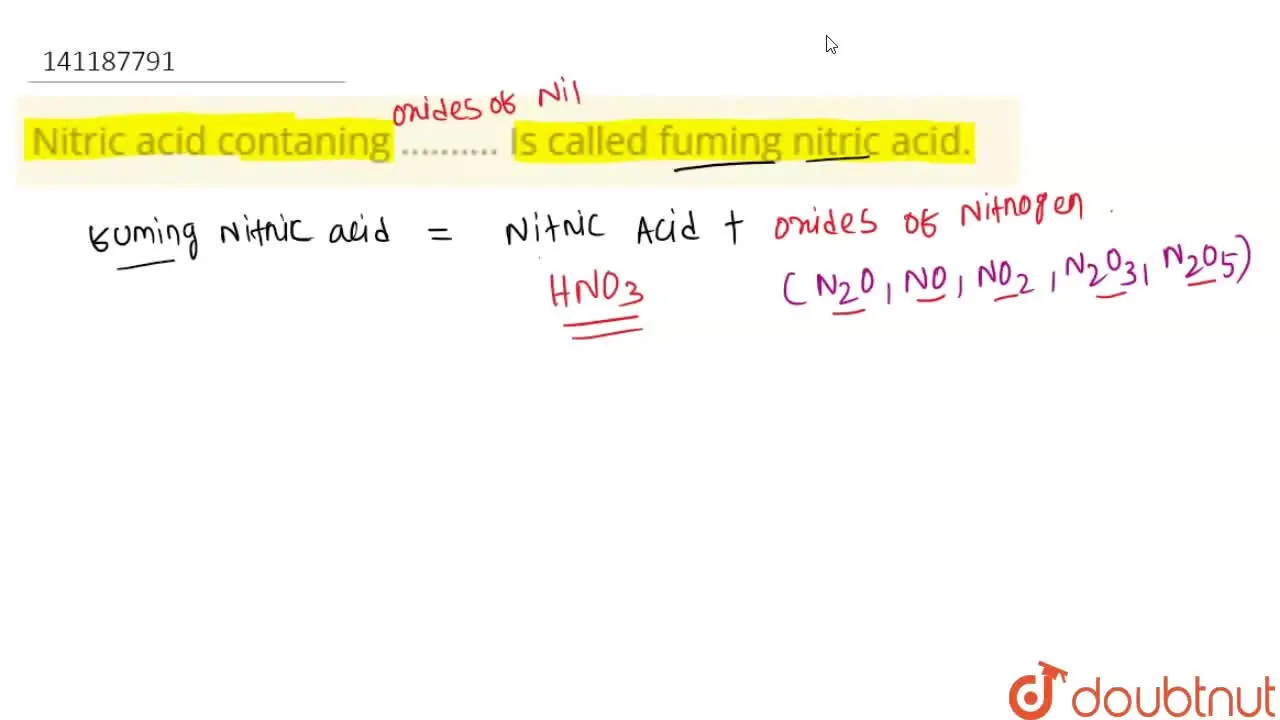 141187791
oxides of Nit
Nitric acid contaning .......... Is called fuming nitric acid.
fuming Nitric acid = Nitric Acid + oxides of Nitrogen
HNO3 (N2O, NO, NO2, N2O3, N2O5)
doubtnut